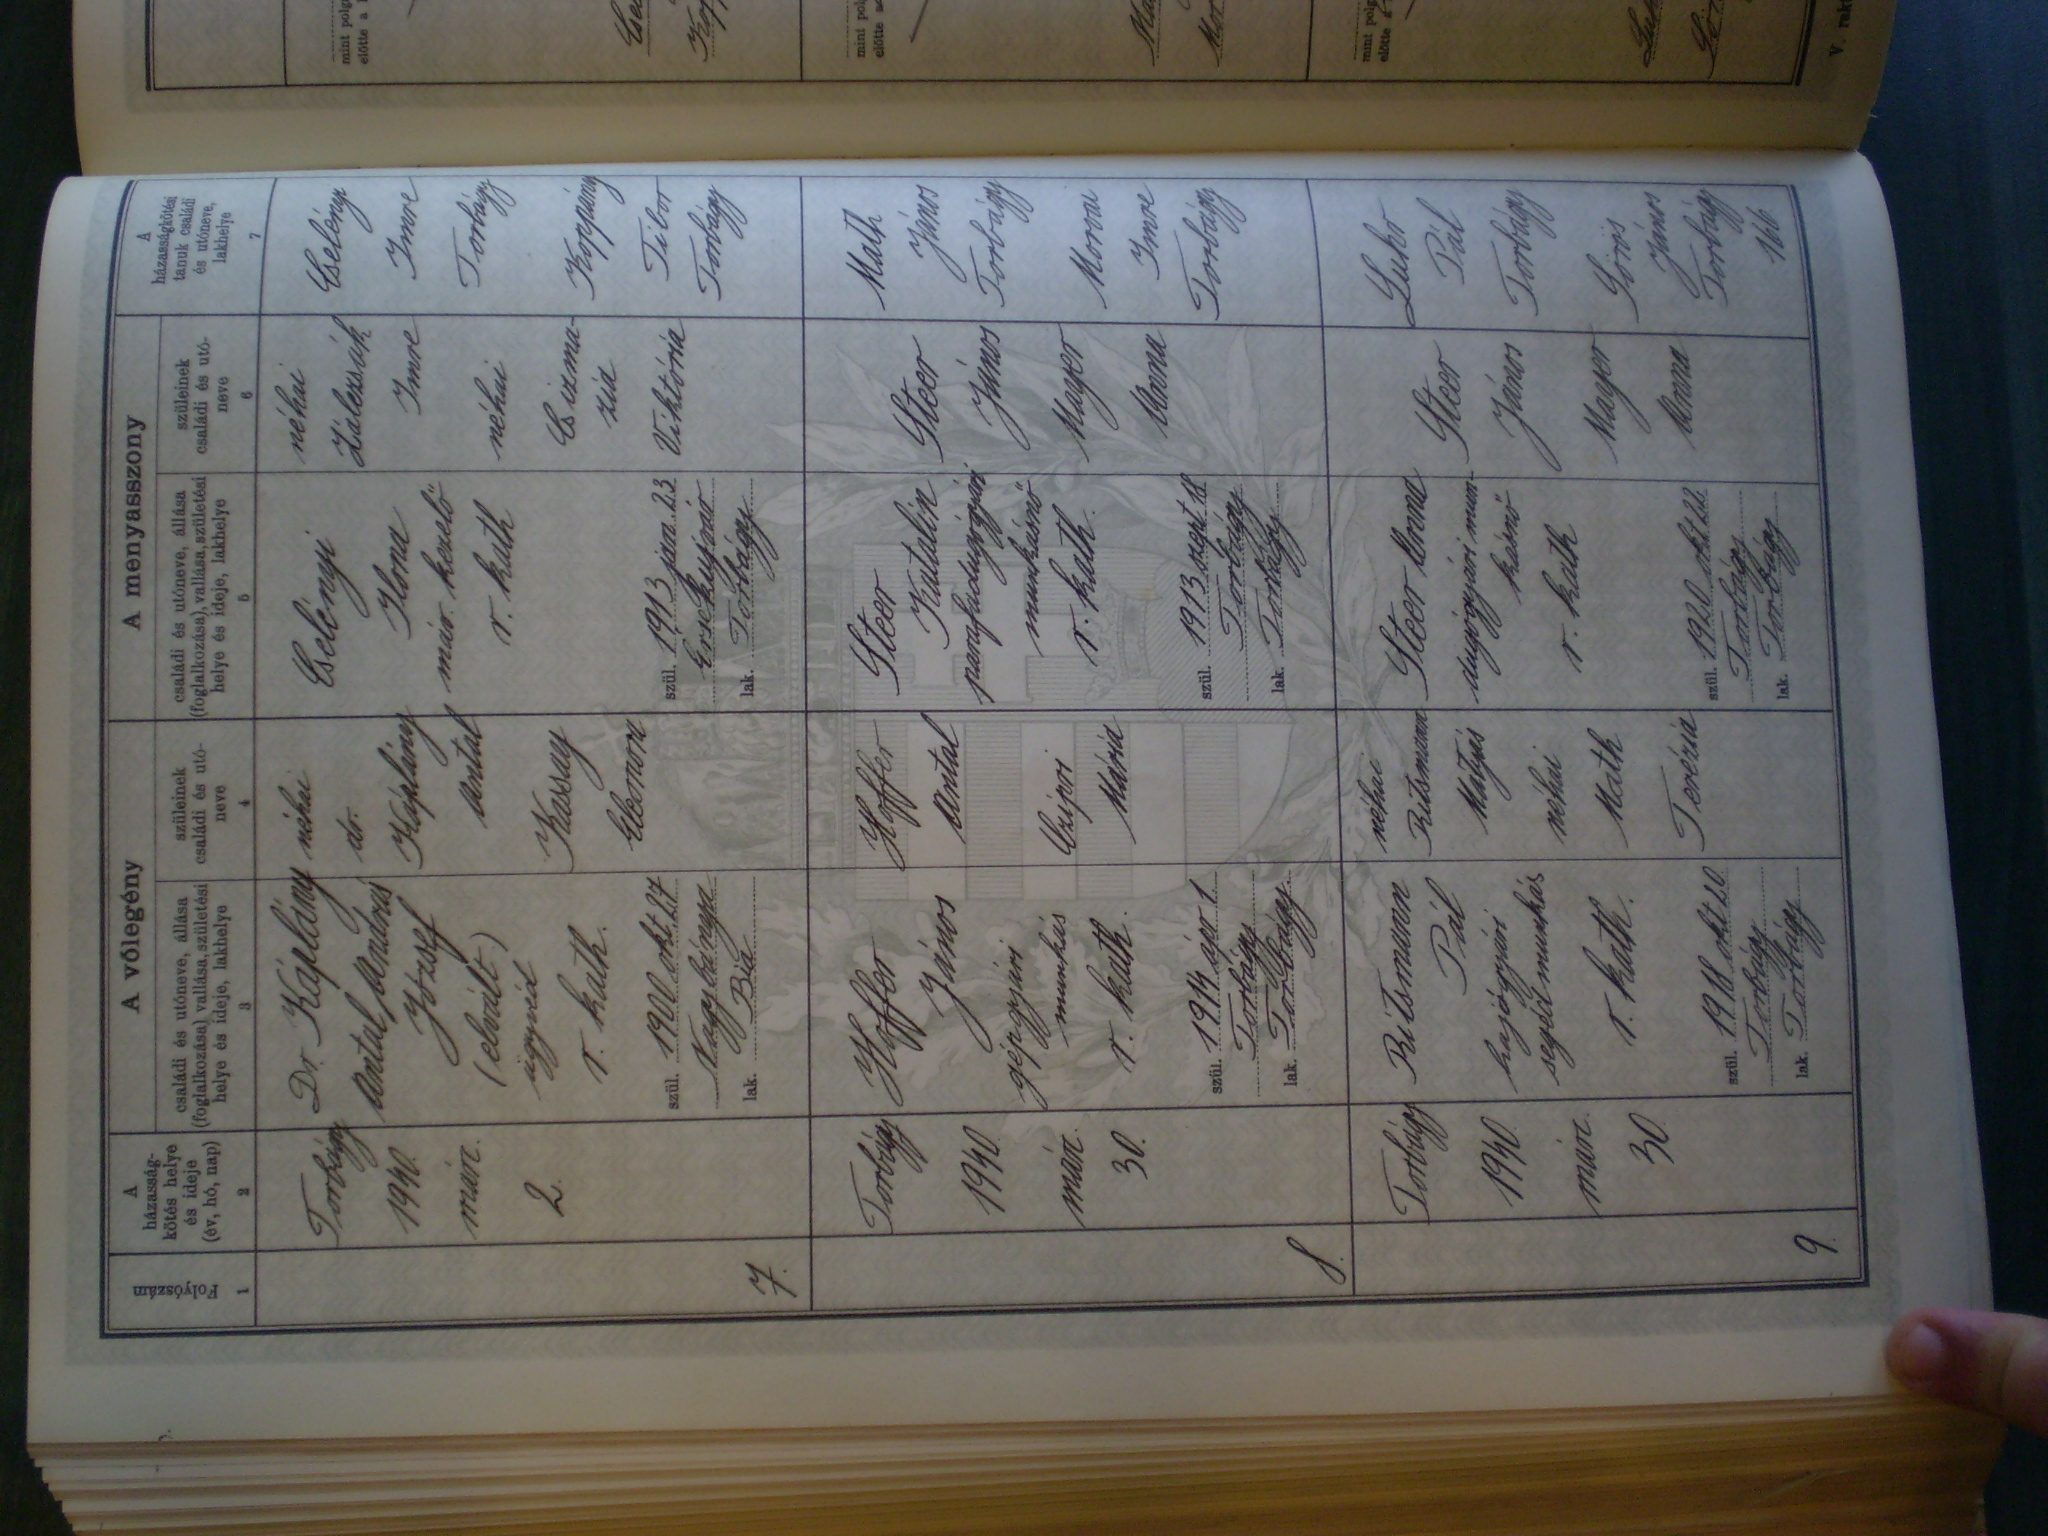 A vőlegény
A menyasszony
Folyószám
1
A
házasság-
kötés helye
és ideje
(év, hó, nap)
2
családi és utóneve, állása
(foglalkozása), vallása, születési
helye és ideje, lakhelye
3
szüleinek
családi és utó-
neve
4
családi és utóneve, állása
(foglalkozása), vallása, születési
helye és ideje, lakhelye
5
szüleinek
családi és utó-
neve
6
A
házasságkötési
tanuk családi
és utóneve,
lakhelye
7
7.
Torbágy
1940.
márc.
2.
Dr. Káplány
Antal, András
József
(elvált.)
ügyvéd
r. kath.
szül. 1900 okt. 27
Nagybánya
lak. Bia
néhai
dr.
Káplány
Antal
Kassay
Eleonora
Cselényi
Ilona
máv. kezelő
r. kath
szül. 1913 jan. 23
Érsekujvár
lak. Torbágy
néhai
Zalezsák
Imre
néhai
Csizma-
zia
Viktória
Cselényi
Imre
Torbágy
Koppány
Tibor
Torbágy
8.
Torbágy
1940.
márc.
30.
Hoffer
János
gépgyári
munkás
r. kath.
szül. 1914 ápr 1.
Torbágy
lak. Torbágy
Hoffer
Antal
Czipri
Mária
Steer
Katalin
parafadugógyári
munkásnő
r. kath.
szül. 1913 szept 18
Torbágy
lak. Torbágy
Steer
János
Mayer
Anna
Math
János
Torbágy
Morvai
Imre
Torbágy
9.
Torbágy
1940.
márc.
30.
Ritsmann
Pál
hajógyári
segédmunkás
r. kath.
szül. 1918 okt 20.
Torbágy
lak. Torbágy
néhai
Ritsmann
Mátyás
néhai
Math
Terézia
Steer Anna
dugógyári mun-
kásnő
r. kath
szül. 1920 okt 22.
Torbágy
lak. Torbágy
Steer
János
Mayer
Anna
Luhr
Pál
Torbágy
János
Torbágy
166